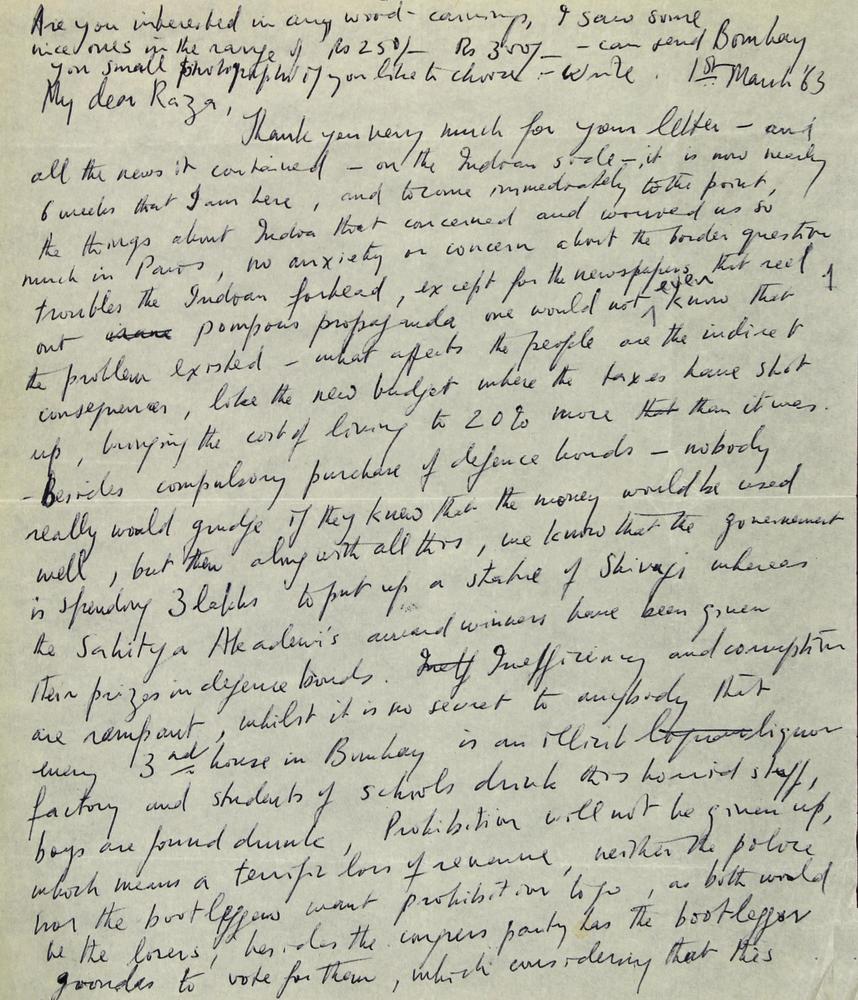 Are you interested in any wood-carvings, I saw some
nice ones in the range of Rs 250/- Rs 300/- - can send Bombay
you small photographs if you like to choose - Write. 1st March '63
My dear Raza,
Thank you very much for your letter - and
all the news it contained - on the Indian side -, it is now nearly
6 weeks that I am here, and to come immediately to the point,
the things about India that concerned and worried us so
much in Paris, no anxiety or concern about the border question
troubles the Indian forhead, except for the newspapers that reel
out pompous propaganda one would not even know that
the problem existed - what affects the people are the indirect
consequences, like the new budget where the taxes have shot
up, bringing the cost of living to 20% more that than it was.
- Besides compulsory purchase of defence bonds - nobody
really would grudge if they knew that the money would be used
well, but then along with all this, we know that the government
is spending 3 lakhs to put up a statue of Shivaji whereas
the Sahitya Akademi's award winners have been given
their prizes in defence bonds. Ineff Inefficiency and corruption
are rampant, whilst it is no secret to anybody that
every 3rd house in Bombay is an illicit liquor
factory and students of schools drink this horrid stuff,
boys are found drunk, Prohibition will not be given up,
which means a terrific loss of revenue, neither the police
nor the bootleggers want prohibition to go, as both would
be the losers, besides the congress party has the bootlegger
goondas to vote for them, which considering that this